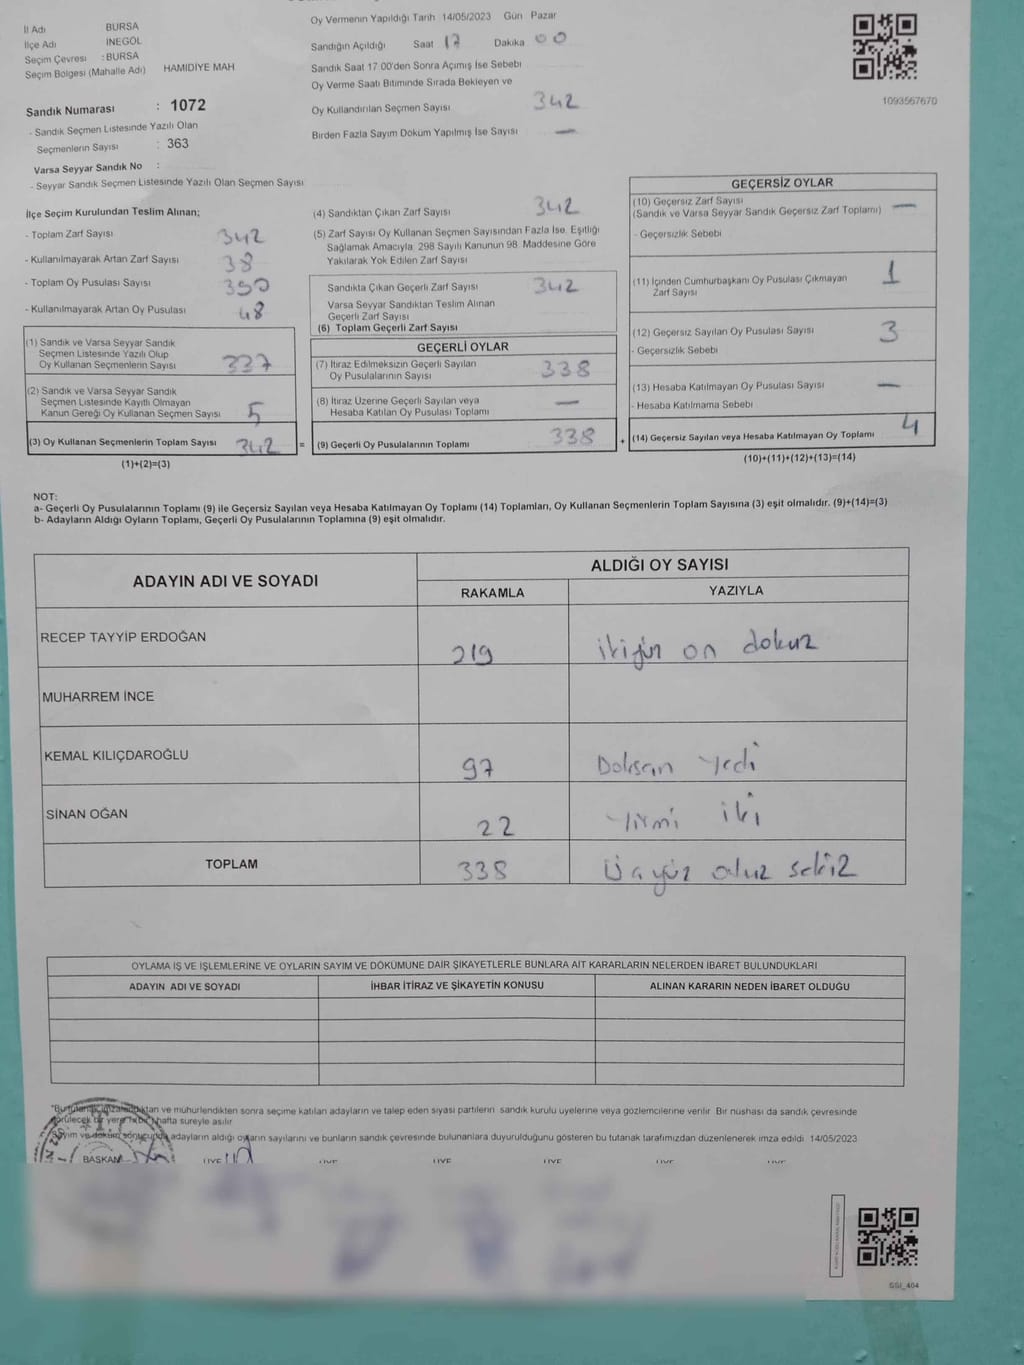 İl Adı BURSA
İlçe Adı İNEGÖL
Seçim Çevresi : BURSA
Seçim Bölgesi (Mahalle Adı) HAMİDİYE MAH
Sandık Numarası : 1072
- Sandık Seçmen Listesinde Yazılı Olan
Seçmenlerin Sayısı : 363
Varsa Seyyar Sandık No :
- Seyyar Sandık Seçmen Listesinde Yazılı Olan Seçmen Sayısı
Oy Vermenin Yapıldığı Tarih 14/05/2023 Gün Pazar
Sandığın Açıldığı Saat 17 Dakika 00
Sandık Saat 17 00'den Sonra Açımış İse Sebebi
Oy Verme Saati Bitiminde Sırada Bekleyen ve
Oy Kullandırılan Seçmen Sayısı 342
Birden Fazla Sayım Döküm Yapılmış İse Sayısı —
1093567670
İlçe Seçim Kurulundan Teslim Alınan;
- Toplam Zarf Sayısı 342
- Kullanılmayarak Artan Zarf Sayısı 38
- Toplam Oy Pusulası Sayısı 390
- Kullanılmayarak Artan Oy Pusulası 48
(1) Sandık ve Varsa Seyyar Sandık
Seçmen Listesinde Yazılı Olup
Oy Kullanan Seçmenlerin Sayısı 337
(2) Sandık ve Varsa Seyyar Sandık
Seçmen Listesinde Kayıtlı Olmayan
Kanun Gereği Oy Kullanan Seçmen Sayısı 5
(3) Oy Kullanan Seçmenlerin Toplam Sayısı 342 =
(1)+(2)=(3)
(4) Sandıktan Çıkan Zarf Sayısı 342
(5) Zarf Sayısı Oy Kullanan Seçmen Sayısından Fazla İse, Eşitliği
Sağlamak Amacıyla, 298 Sayılı Kanunun 98. Maddesine Göre
Yakılarak Yok Edilen Zarf Sayısı
Sandıkta Çıkan Geçerli Zarf Sayısı 342
Varsa Seyyar Sandıktan Teslim Alınan
Geçerli Zarf Sayısı
(6) Toplam Geçerli Zarf Sayısı
GEÇERLİ OYLAR
(7) İtiraz Edilmeksizin Geçerli Sayılan
Oy Pusulalarının Sayısı 338
(8) İtiraz Üzerine Geçerli Sayılan veya
Hesaba Katılan Oy Pusulası Toplamı —
(9) Geçerli Oy Pusulalarının Toplamı 338 +
GEÇERSİZ OYLAR
(10) Geçersiz Zarf Sayısı
(Sandık ve Varsa Seyyar Sandık Geçersiz Zarf Toplamı) —
- Geçersizlik Sebebi
(11) İçinden Cumhurbaşkanı Oy Pusulası Çıkmayan
Zarf Sayısı 1
(12) Geçersiz Sayılan Oy Pusulası Sayısı 3
- Geçersizlik Sebebi
(13) Hesaba Katılmayan Oy Pusulası Sayısı —
- Hesaba Katılmama Sebebi
(14) Geçersiz Sayılan veya Hesaba Katılmayan Oy Toplamı 4
(10)+(11)+(12)+(13)=(14)
NOT:
a- Geçerli Oy Pusulalarının Toplamı (9) ile Geçersiz Sayılan veya Hesaba Katılmayan Oy Toplamı (14) Toplamları, Oy Kullanan Seçmenlerin Toplam Sayısına (3) eşit olmalıdır. (9)+(14)=(3)
b- Adayların Aldığı Oyların Toplamı, Geçerli Oy Pusulalarının Toplamına (9) eşit olmalıdır.
ADAYIN ADI VE SOYADI ALDIĞI OY SAYISI
RAKAMLA YAZIYLA
RECEP TAYYİP ERDOĞAN 219 ikiyüz on dokuz
MUHARREM İNCE
KEMAL KILIÇDAROĞLU 97 Doksan Yedi
SİNAN OĞAN 22 Yirmi iki
TOPLAM 338 Üçyüz otuz sekiz
OYLAMA İŞ VE İŞLEMLERİNE VE OYLARIN SAYIM VE DÖKÜMÜNE DAİR ŞİKAYETLERLE BUNLARA AİT KARARLARIN NELERDEN İBARET BULUNDUKLARI
ADAYIN ADI VE SOYADI İHBAR İTİRAZ VE ŞİKAYETİN KONUSU ALINAN KARARIN NEDEN İBARET OLDUĞU
ve mühürlendikten sonra seçime katılan adayların ve talep eden siyasi partilerin sandık kurulu üyelerine veya gözlemcilerine verilir. Bir nüshası da sandık çevresinde
görülecek bir yere hafta süreyle asılır
adayların aldığı oyların sayılarını ve bunların sandık çevresinde bulunanlara duyurulduğunu gösteren bu tutanak tarafımızdan düzenlenerek imza edildi. 14/05/2023
BAŞKAN ÜYE ÜYE ÜYE ÜYE ÜYE ÜYE
GSI_404